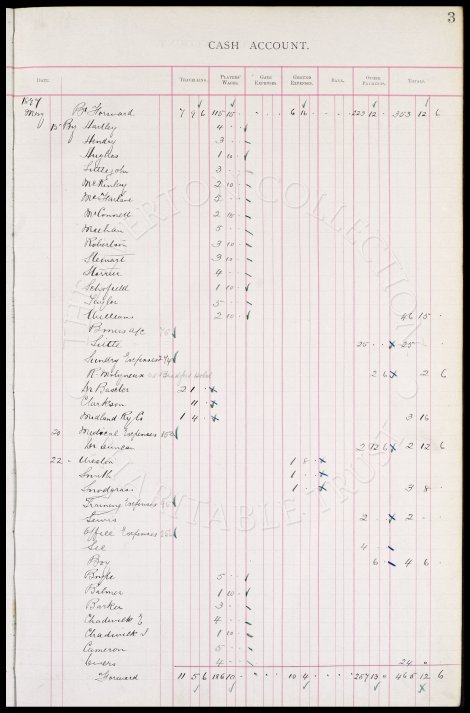 3
CASH ACCOUNT.
DATE. TRAVELLING. PLAYERS' WAGES. GATE EXPENSES. GROUND EXPENSES. BANK. OTHER PAYMENTS. TOTALS.
1897
May Bt Forward 7 9 6 115 15 6 12 223 12 353 12 6
15 By Hartley 4
Hendry 3
Hughes 1 10
Littlejohn 3
McKinley 2 10
McFarlane 5
McConnell 2 15
Meehan 5
Robertson 3 10
Stewart 3 10
Storrier 4
Schofield 1 10
Taylor 5
Williams 2 10 46 15
Bonus a/c
Little 25 25
Sundry Expenses
R Molyneux 2 6 2 6
Dr Baxter 2 1
Clarkson 11
Midland Ry Co 1 4 3 16
20 Medical Expenses
Dr Duncan 2 12 6 2 12 6
22 1 8
Smith 1
Snodgrass 1 3 8
Training Expenses
Lewis 2 2
Office Expenses
Gee 4
Boy 6 4 6
Boyle 5
Balmer 1 10
Barker 3
Chadwick E 4
Chadwick J 1 10
Cameron 5
4 24 0
Forward 11 5 6 186 10 10 4 257 13 0 465 12 6
THE EVERTON COLLECTION
CHARITABLE TRUST